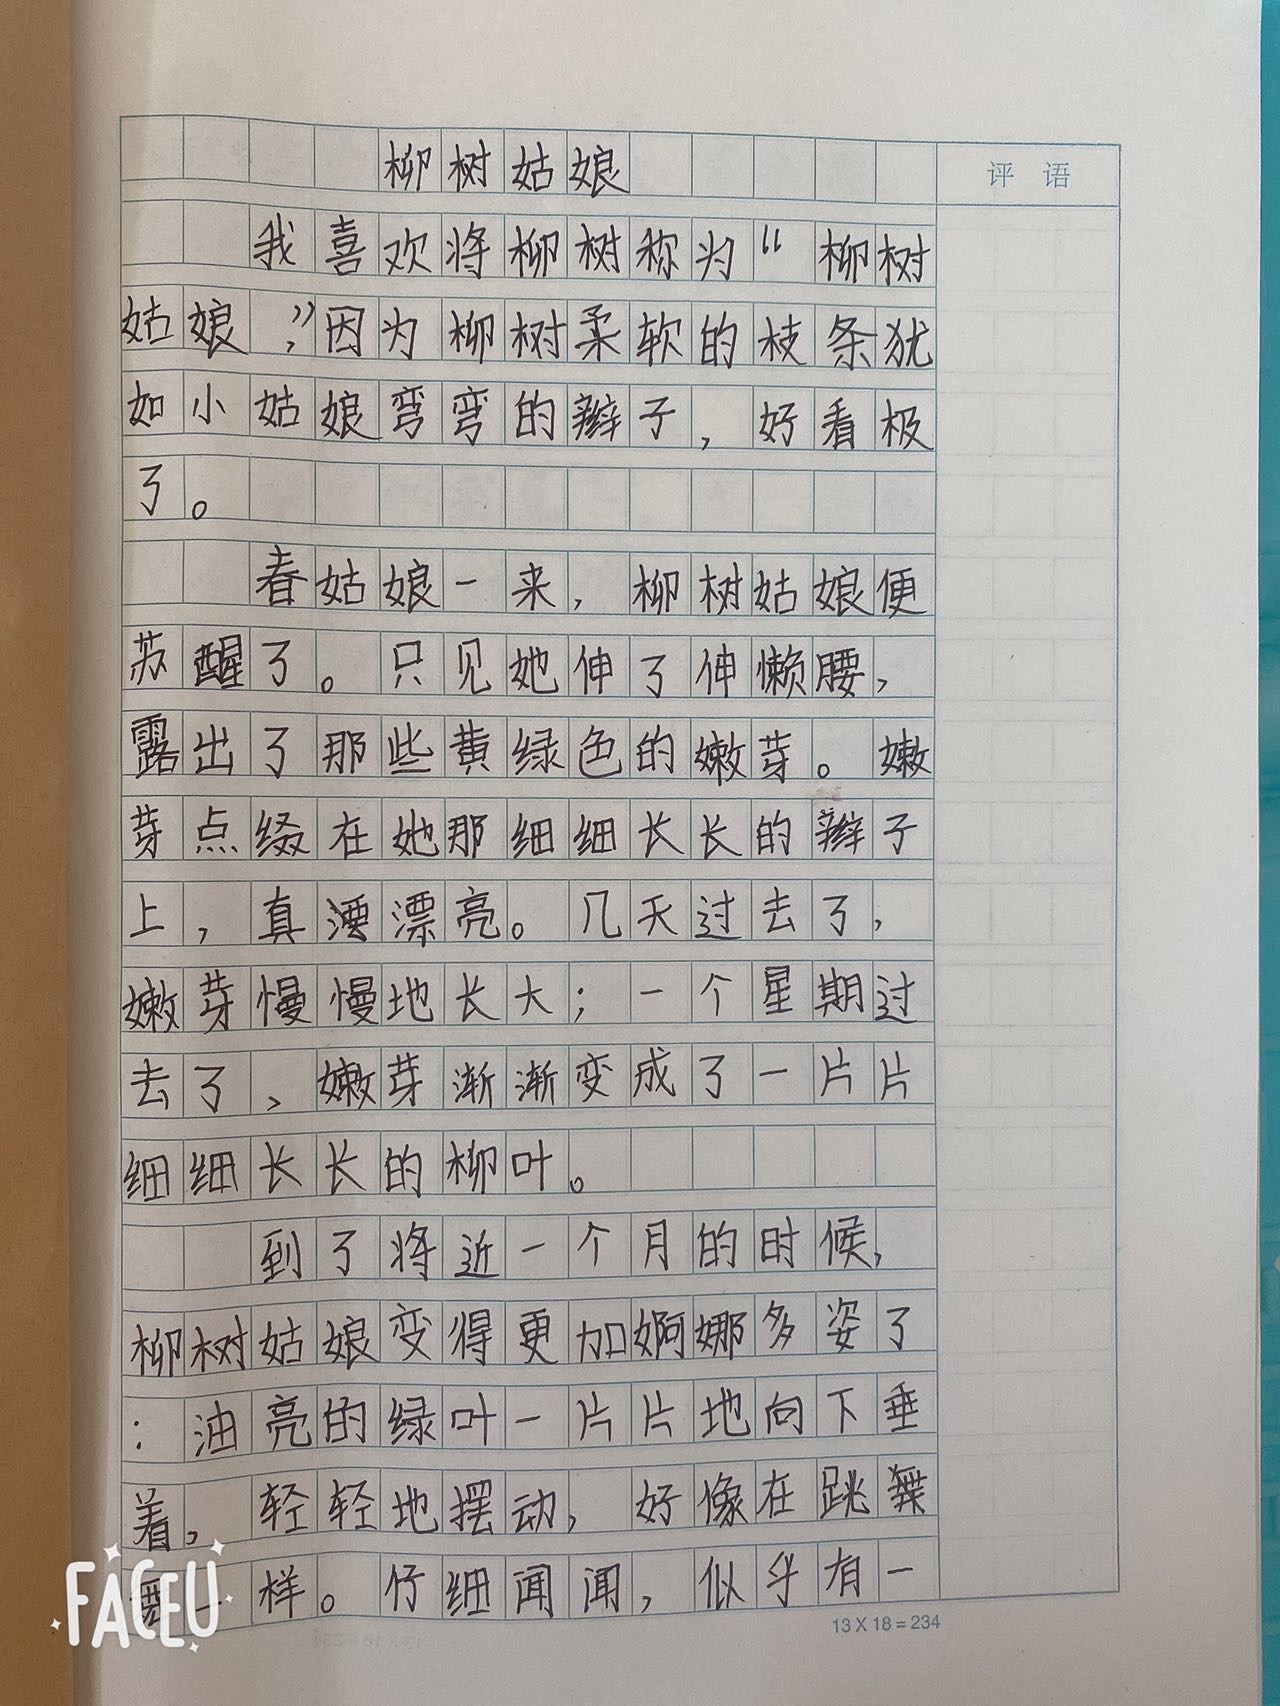 柳树姑娘
评语
我喜欢将柳树称为“柳树
姑娘”,因为柳树柔软的枝条犹
如小姑娘弯弯的辫子,好看极
了。
春姑娘一来,柳树姑娘便
苏醒了。只见她伸了伸懒腰,
露出了那些黄绿色的嫩芽。嫩
芽点缀在她那细细长长的辫子
上,真漂漂亮。几天过去了,
嫩芽慢慢地长大;一个星期过
去了、嫩芽渐渐变成了一片片
细细长长的柳叶。
到了将近一个月的时候,
柳树姑娘变得更加婀娜多姿了
:油亮的绿叶一片片地向下垂
着,轻轻地摆动,好像在跳舞
一样。仔细闻闻,似乎有一
13 X 18 = 234
FACEU